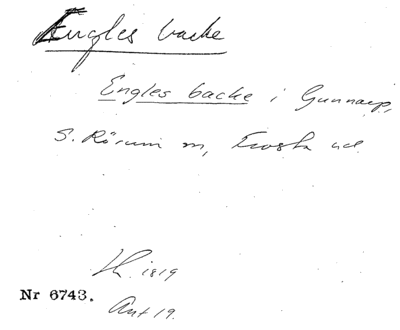 Engles backe
Engles backe i Gunnarp,
S. Rörum sn, Frosta hd.
1819
Nr 6743.
Ant 19.